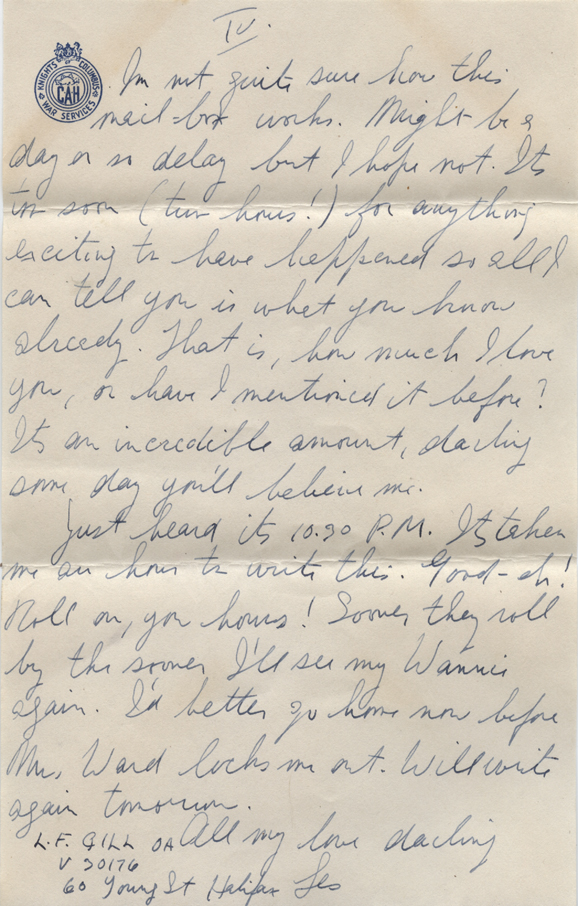 IV.
KNIGHTS OF COLUMBUS
CAH
WAR SERVICES
I'm not quite sure how this
mail-box works. Might be a
day or so delay but I hope not. Its
too soon (two hours!) for anything
exciting to have happened so all I
can tell you is what you know
already. That is, how much I love
you, or have I mentioned it before?
Its an incredible amount, darling
some day you'll believe me.
Just heard its 10.30 P.M. Its taken
me an hour to write this. Good-eh!
Roll on, you hours! Sooner they roll
by the sooner I'll see my Wannie
again. I'd better go home now before
Mrs. Ward locks me out. Will write
again tomorrow.
All my love darling
Les
L.F. GILL OA
V 30176
60 Young St Halifax